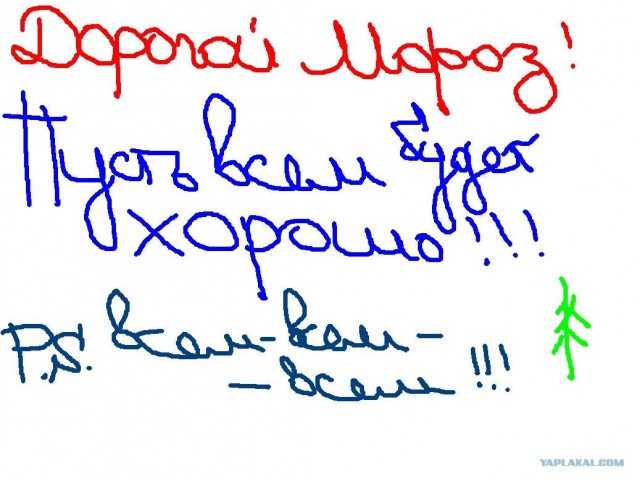 Дорогой Мороз!
Пусть всем будет
хорошо!!!
P.S. Всем-всем-
-всем!!!
YAPLAKAL.COM